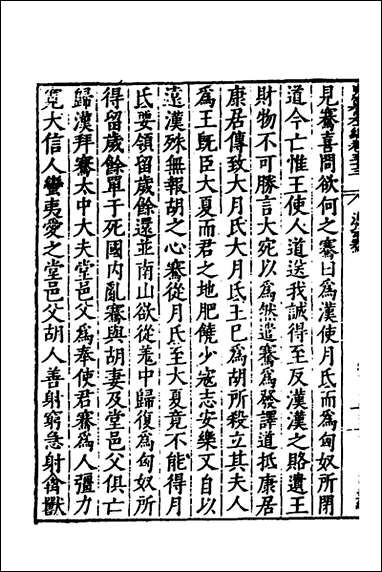 見騫喜問欲何之騫曰爲漢使月氏而爲匈奴所閉
道今亡惟王使人道送我誠得至反漢漢之賂遺王
財物不可勝言大宛以爲然遣騫爲發譯道抵康居
康居傳致大月氏大月氏王已爲胡所殺立其夫人
爲王既臣大夏而君之地肥饒少寇志安樂又自以
遠漢殊無報胡之心騫從月氏至大夏竟不能得月
氏要領留歲餘還並南山欲從羌中歸復爲匈奴所
得留歲餘單于死國内亂騫與胡妻及堂邑父俱亡
歸漢拜騫太中大夫堂邑父爲奉使君騫爲人彊力
寬大信人蠻夷愛之堂邑父胡人善射窮急射禽獸